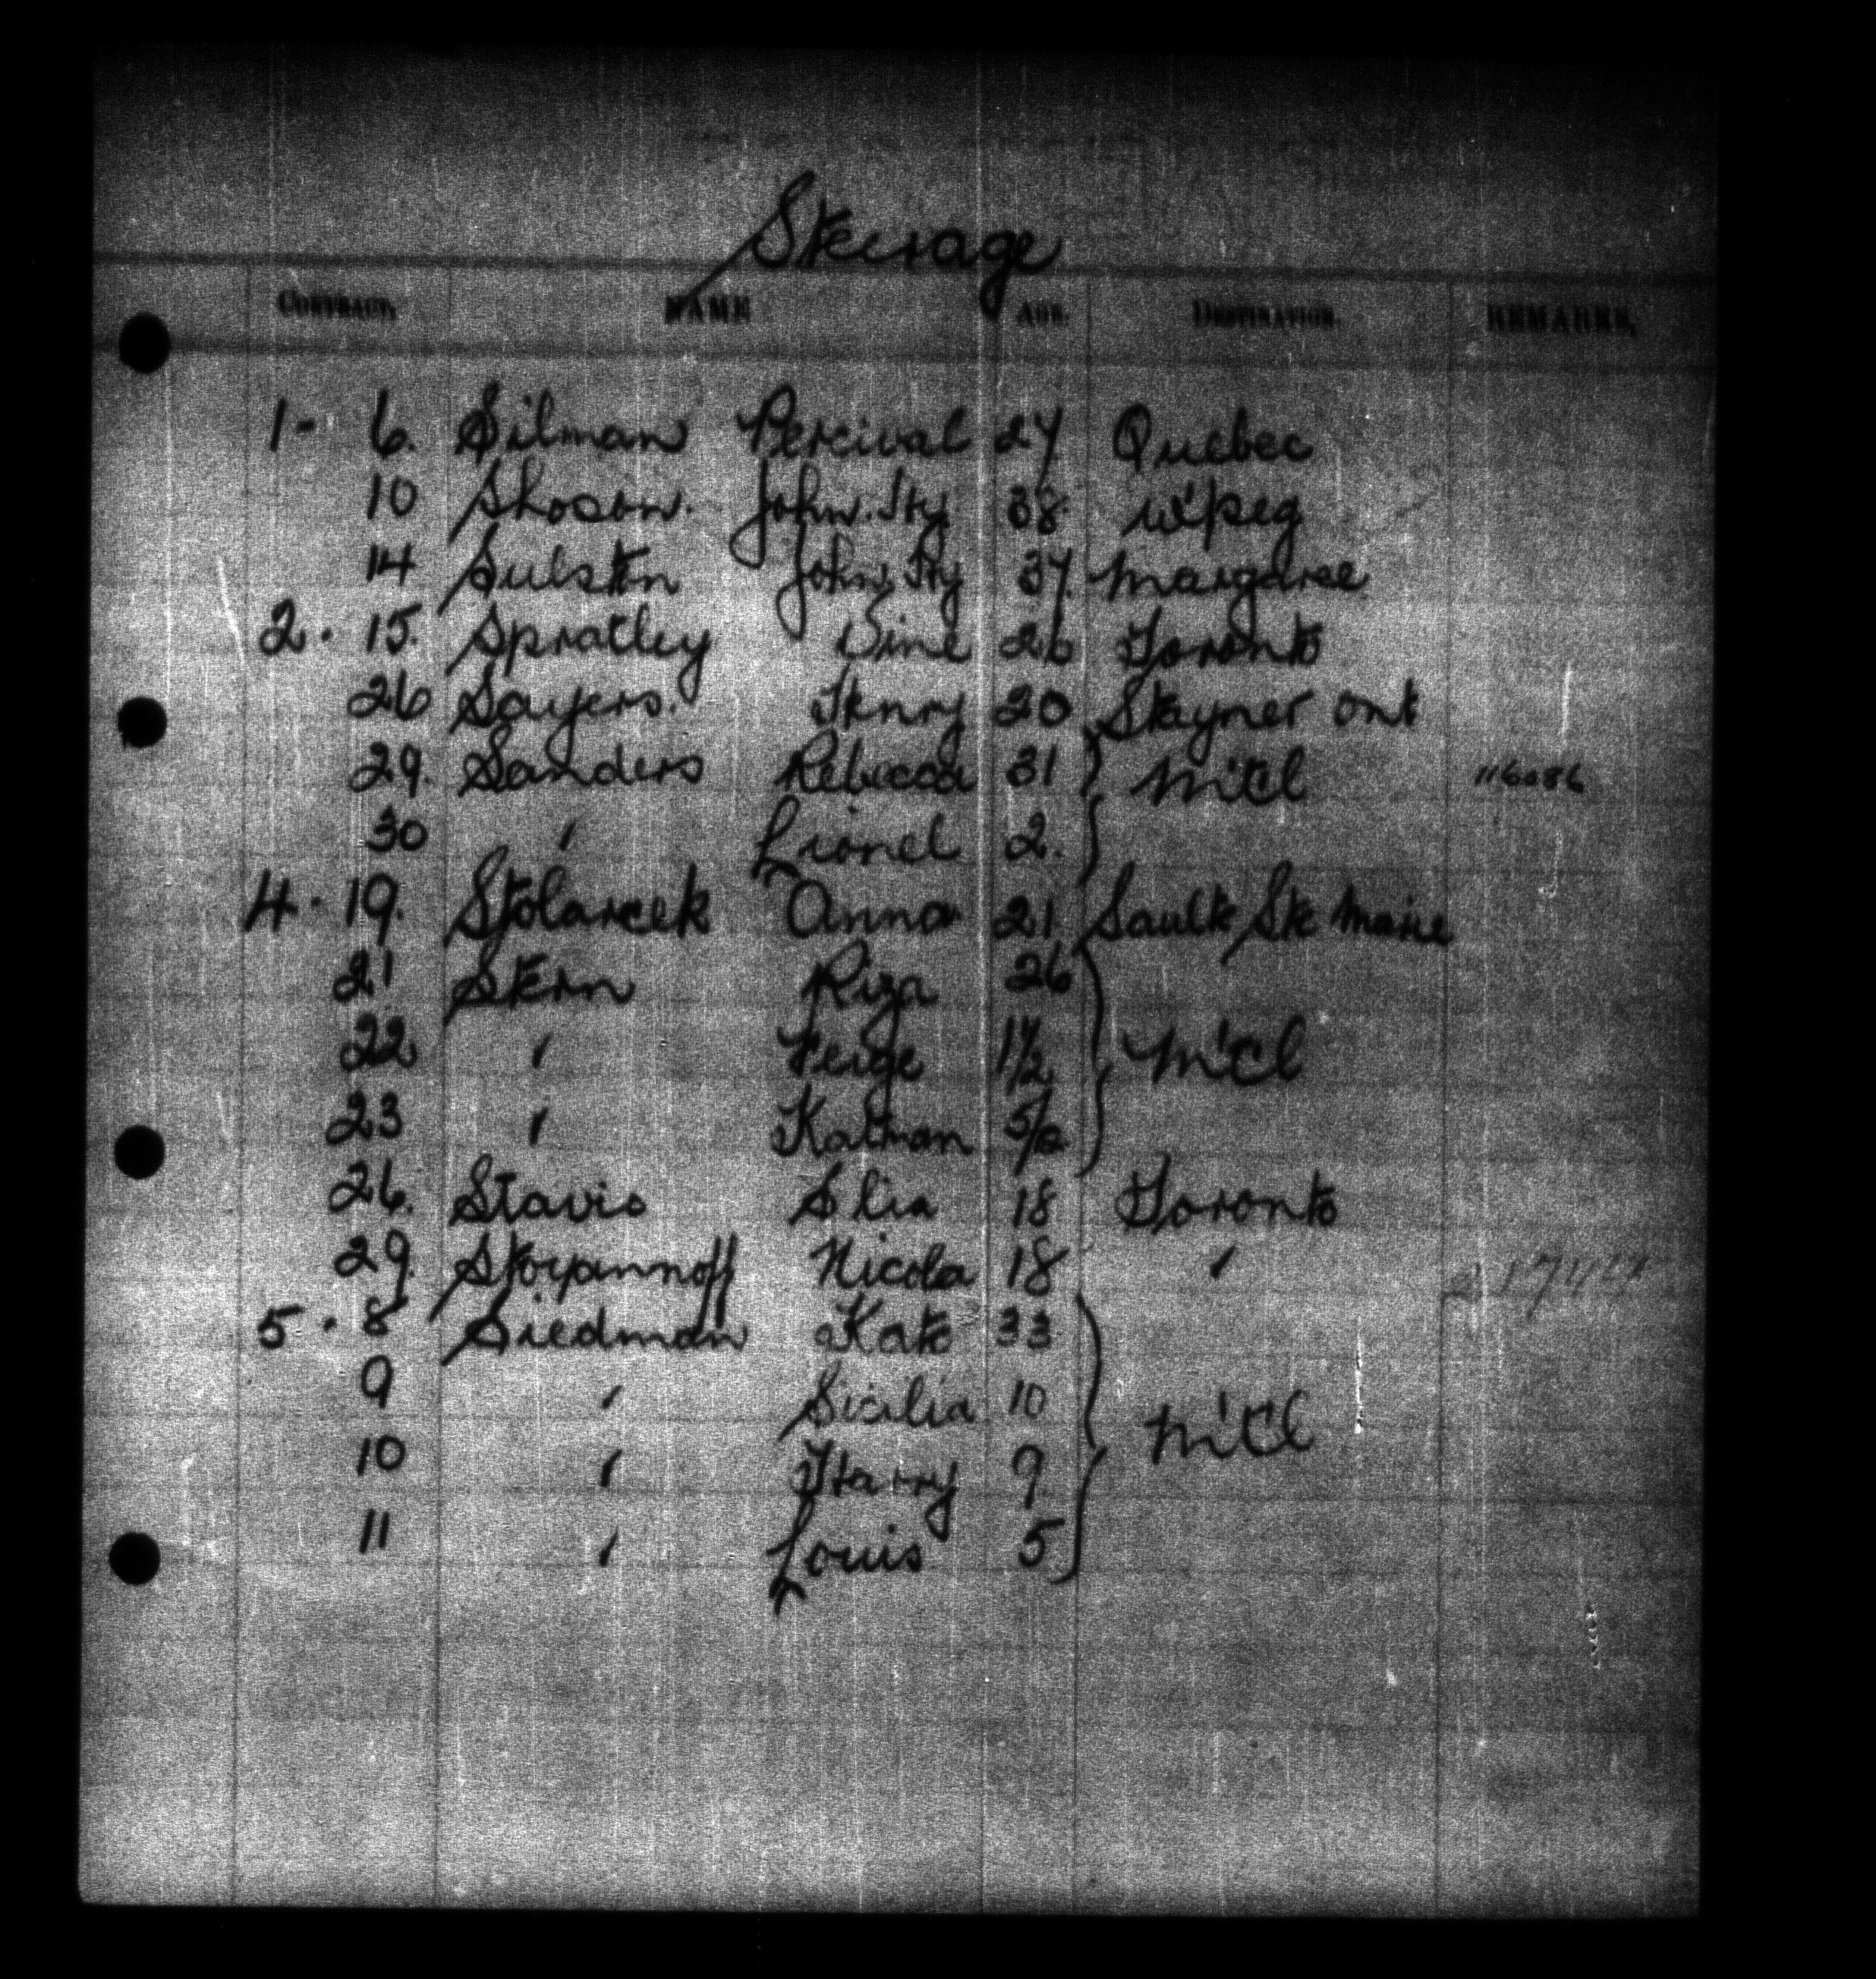 Steerage
CONTRACT. NAME AGE. DESTINATION. REMARKS.
1 - 6. Silman Percival 27 Quebec
10 Shoson. John. Hy 38 W'peg
14 Sulston John. Hy 37 Margaree
2 · 15. Spratley Vine 26 Toronto
26 Sayers. Henry 20 Stayner Ont
29. Sanders Rebecca 31 M'tl 116086
30 " Lionel 2.
4 · 19. Stolarcek Anna 21 Sault Ste Marie
21 Stern Riza 26
22 " Feige 1½ M'tl
23 " Kalman 5/12
26. Stavis Slia 18 Toronto
29. Stoyannoff Nicola 18 "
5 · 8 Siedman Kate 33
9 " Sicilia 10 M'tl
10 " Harry 9
11 " Louis 5